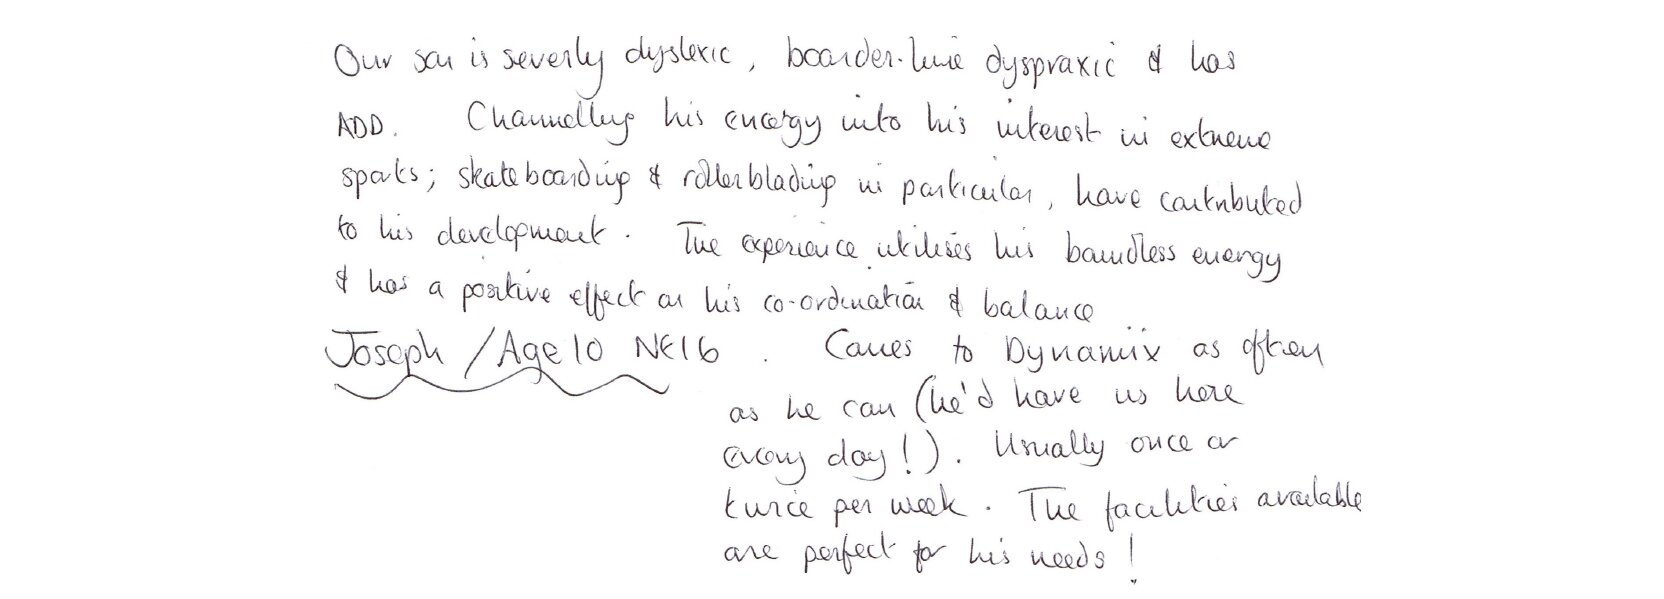 Our son is severly dyslexic, boarder-line dyspraxic & has
ADD. Channelling his energy into his interest in extreme
sports; skateboarding & rollerblading in particular, have contributed
to his development. The experience utilises his boundless energy
& has a positive effect on his co-ordination & balance
Joseph / Age 10 NE16 . Comes to Dynamix as often
as he can (he'd have us here
every day!). Usually once or
twice per week. The facilities available
are perfect for his needs!